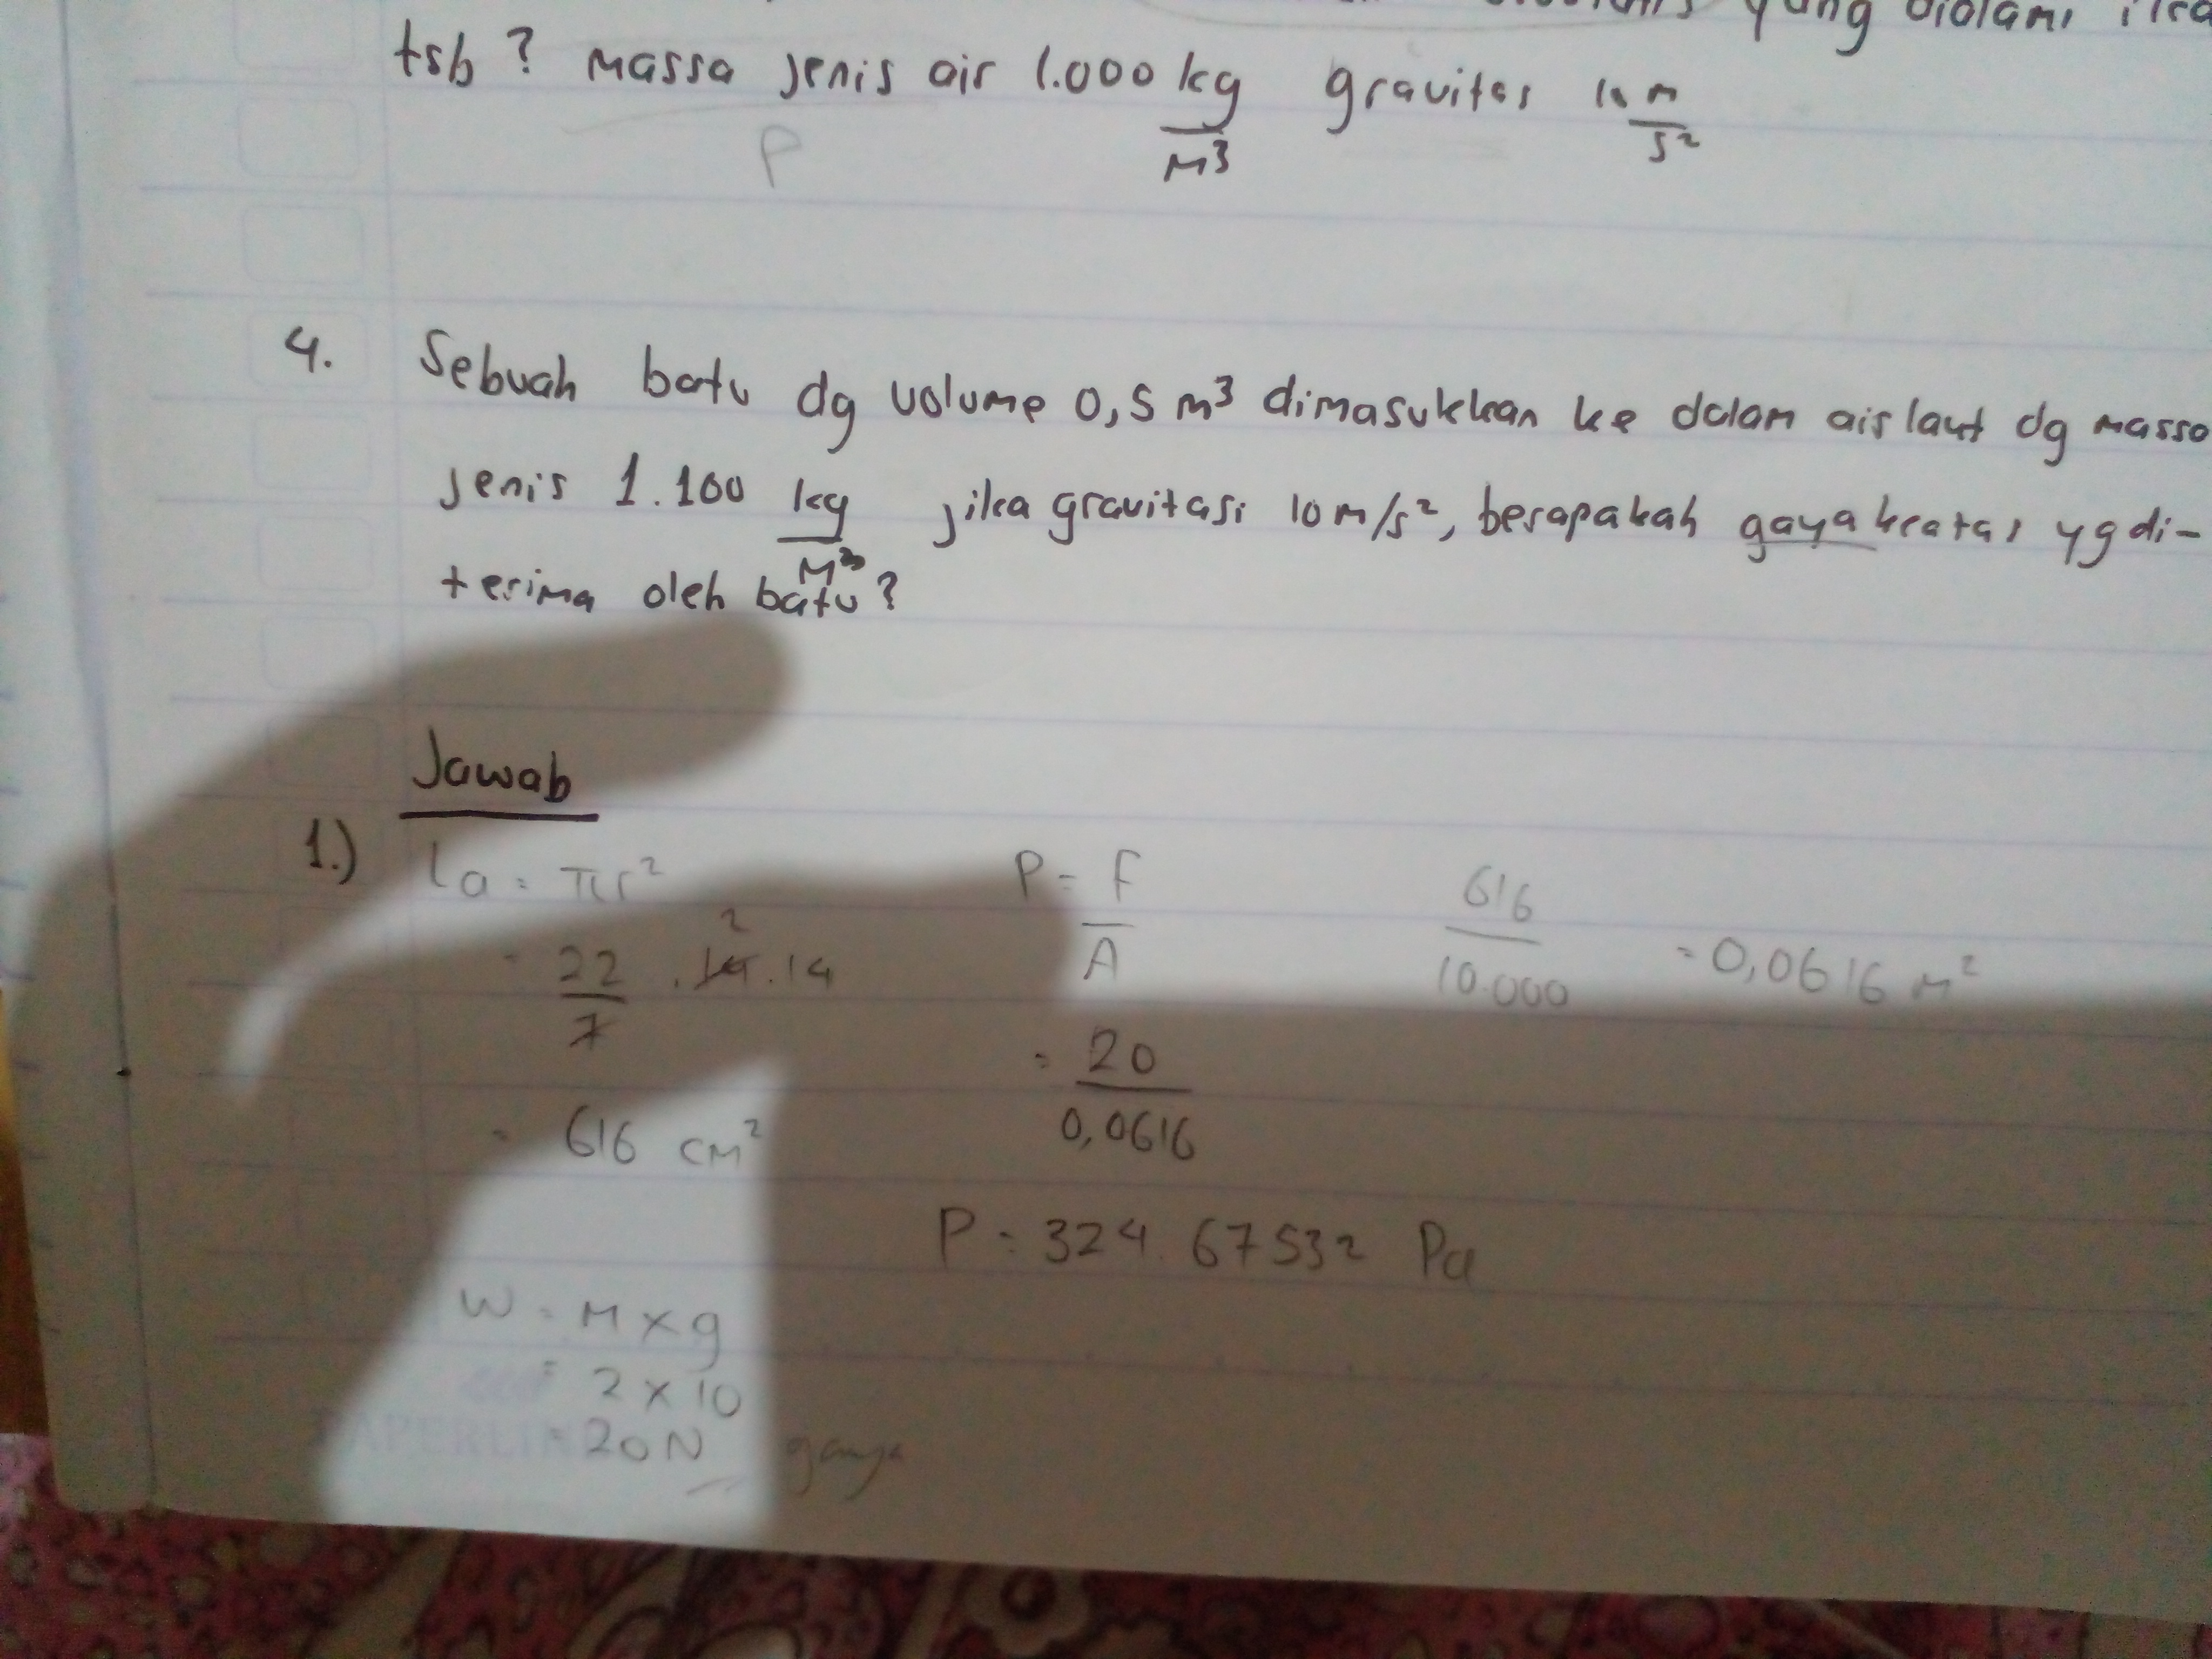 yang dialami
tsb ? massa jenis air 1.000 kg/m³ gravitas 10 m/s²
P
4. Sebuah batu dg volume 0,5 m³ dimasukkan ke dalam air laut dg massa
jenis 1.100 kg/m³ jika gravitasi 10 m/s², berapakah gaya keatas yg di-
terima oleh batu?
Jawab
1.) La = πr²
= 22/7 . 14 . 14
2
= 616 cm²
W = m x g
= 2 x 10
= 20 N gaya
P = F/A
= 20/0,0616
P = 324.67532 Pa
616/10.000 = 0,0616 m²